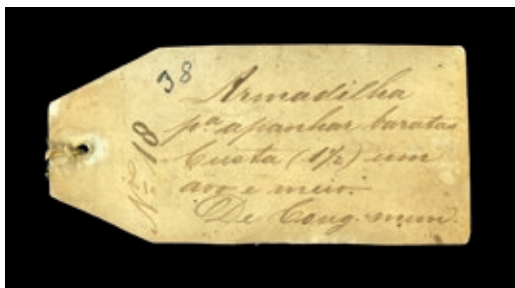 38
Nº 18
Armadilha
pª apanhar baratas
Custa (1½) um
avo e meio.
De Cong-mun.